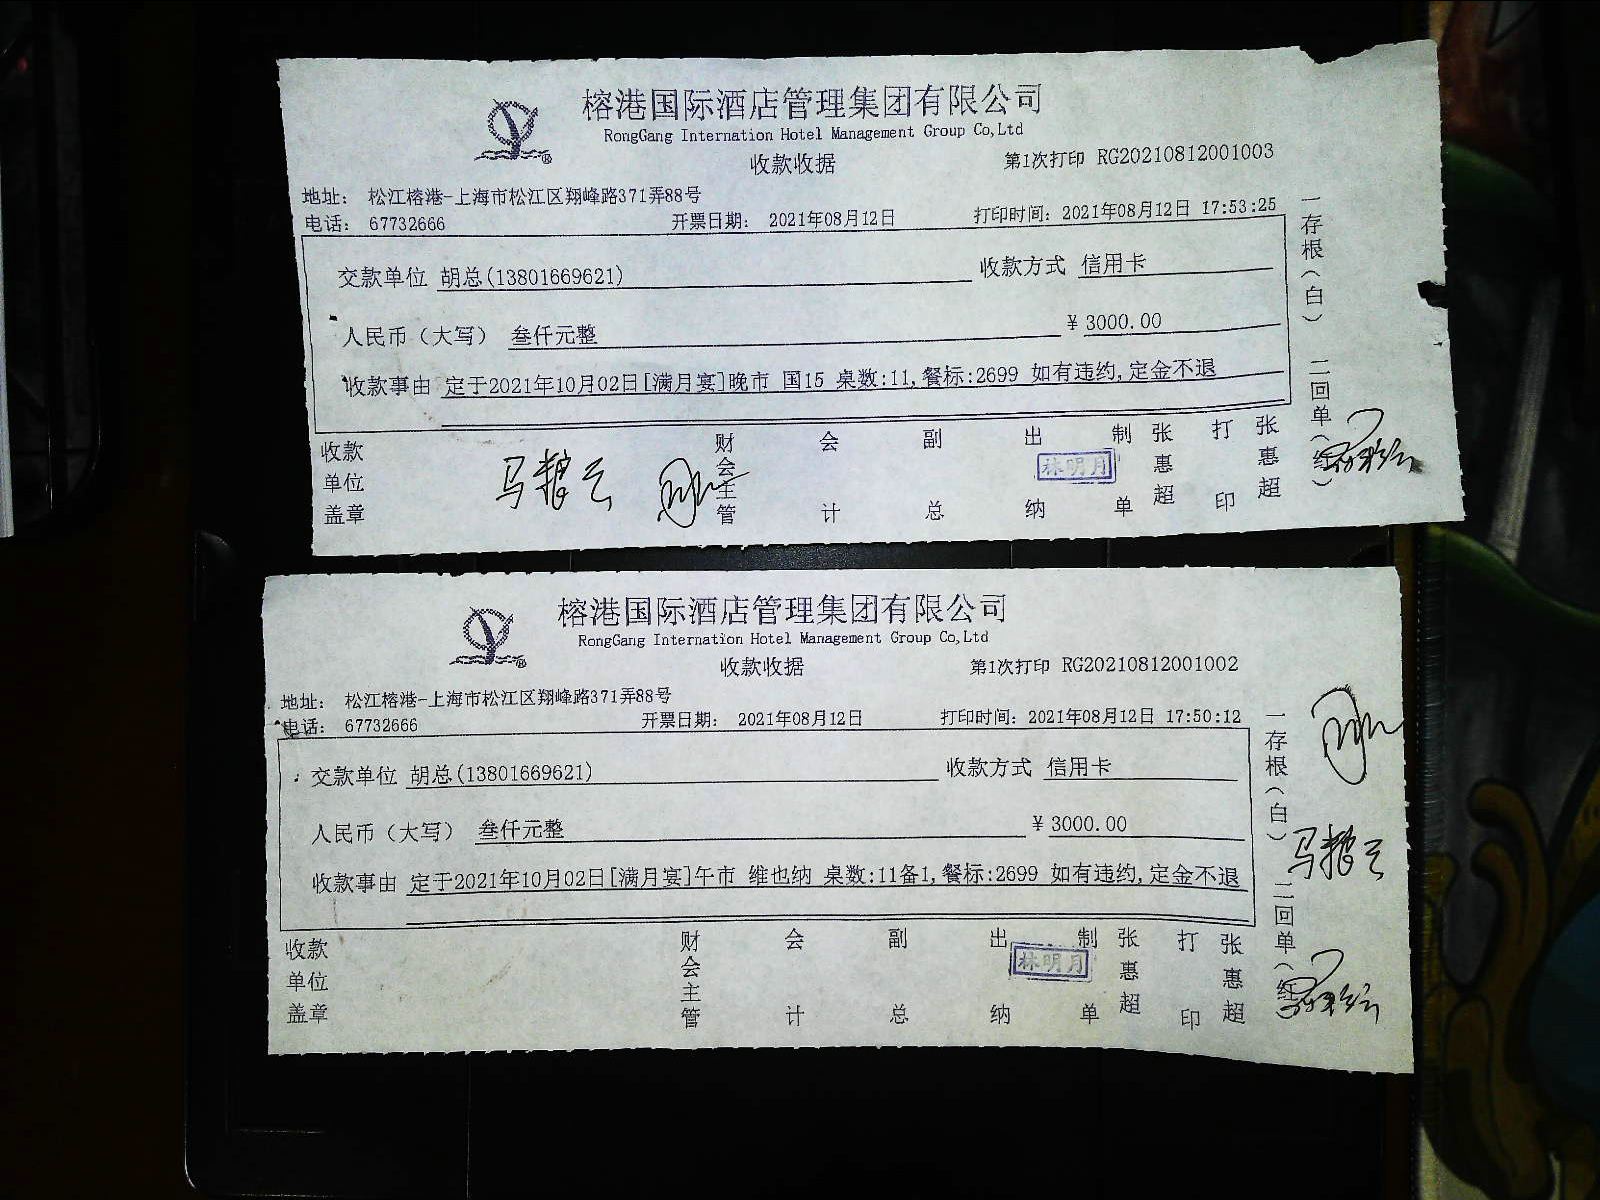 榕港国际酒店管理集团有限公司
RongGang Internation Hotel Management Group Co,Ltd
收款收据
第1次打印 RG20210812001003
地址： 松江榕港-上海市松江区翔峰路371弄88号
电话： 67732666 开票日期： 2021年08月12日 打印时间：2021年08月12日 17:53:25
交款单位 胡总(13801669621) 收款方式 信用卡
人民币（大写） 叁仟元整 ¥ 3000.00
收款事由 定于2021年10月02日[满月宴]晚市 国15 桌数:11,餐标:2699 如有违约,定金不退
收款单位盖章 财会主管 会计 副总 出纳 林明月 制单 张惠超 打印 张惠超
马粮云
一存根（白） 二回单（红）
榕港国际酒店管理集团有限公司
RongGang Internation Hotel Management Group Co,Ltd
收款收据
第1次打印 RG20210812001002
地址： 松江榕港-上海市松江区翔峰路371弄88号
电话： 67732666 开票日期： 2021年08月12日 打印时间：2021年08月12日 17:50:12
交款单位 胡总(13801669621) 收款方式 信用卡
人民币（大写） 叁仟元整 ¥ 3000.00
收款事由 定于2021年10月02日[满月宴]午市 维也纳 桌数:11备1,餐标:2699 如有违约,定金不退
收款单位盖章 财会主管 会计 副总 出纳 林明月 制单 张惠超 打印 张惠超
一存根（白） 二回单（红）
马粮云